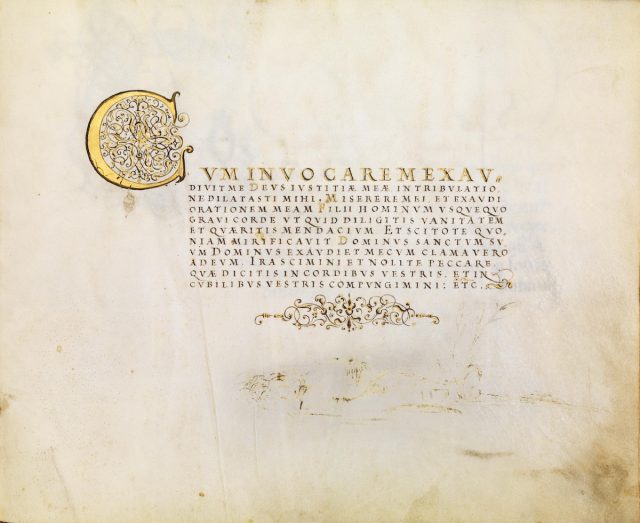 CVM INVOCAREM EXAV,
DIVIT ME DEVS IVSTITIÆ MEÆ IN TRIBVLATIO,
NE DILATASTI MIHI. MISERERE MEI, ET EXAVDI
ORATIONEM MEAM FILII HOMINVM VSQVEQVO
GRAVI CORDE VT QVID DILIGITIS VANITATEM
ET QVÆRITIS MENDACIVM. ET SCITOTE QVO,
NIAM MIRIFICAVIT DOMINVS SANCTVM SV,
VM DOMINVS EXAVDIET ME CVM CLAMAVERO
AD EVM. IRASCIMINI ET NOLITE PECCARE,
QVÆ DICITIS IN CORDIBVS VESTRIS, ET IN
CVBILIBVS VESTRIS COMPVNGIMINI: ETC.